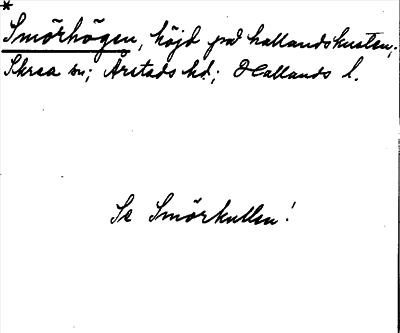 *
Smörhögen, höjd på hallandskusten;
Skrea sn; Årstads hd; Hallands l.
Se Smörkullen!